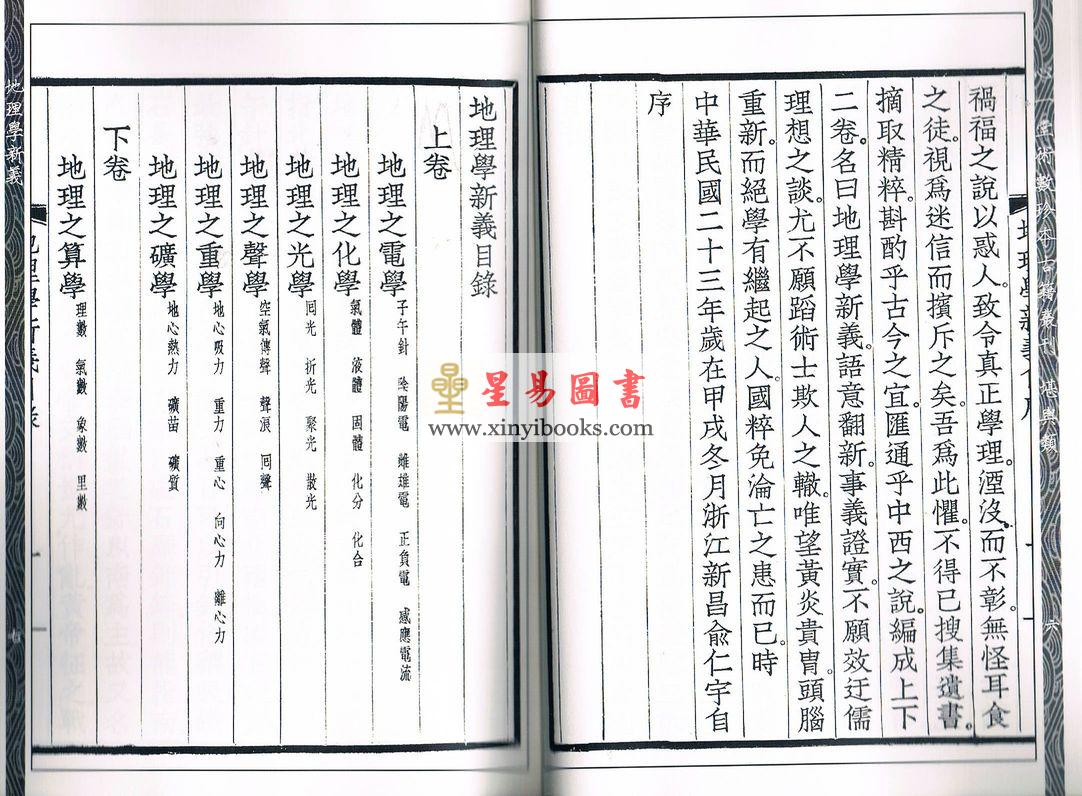 心一堂術數珍本古籍叢刊 堪輿類
六
禍福之說以惑人。致令真正學理。湮沒。而不彰。無怪耳食
之徒。視爲迷信而擯斥之矣。吾爲此懼。不得已搜集遺書。
摘取精粹。斟酌乎古今之宜。匯通乎中西之說。編成上下
二卷。名曰地理學新義。語意翻新。事義證實。不願效迂儒
理想之談。尤不願蹈術士欺人之轍。唯望黃炎貴胄。頭腦
重新。而絕學有繼起之人。國粹免淪亡之患而已。時
中華民國二十三年歲在甲戌冬月浙江新昌俞仁宇自
序
地理學新義目錄
上卷
地理之電學 子午針 陰陽電 雌雄電 正負電 感應電流
地理之化學 氣體 液體 固體 化分 化合
地理之光學 回光 折光 聚光 散光
地理之聲學 空氣傳聲 聲浪 回聲
地理之重學 地心吸力 重力 重心 向心力 離心力
地理之礦學 地心熱力 礦苗 礦質
下卷
地理之算學 理數 氣數 象數 里數
地理學新義
星易圖書
www.xinyibooks.com